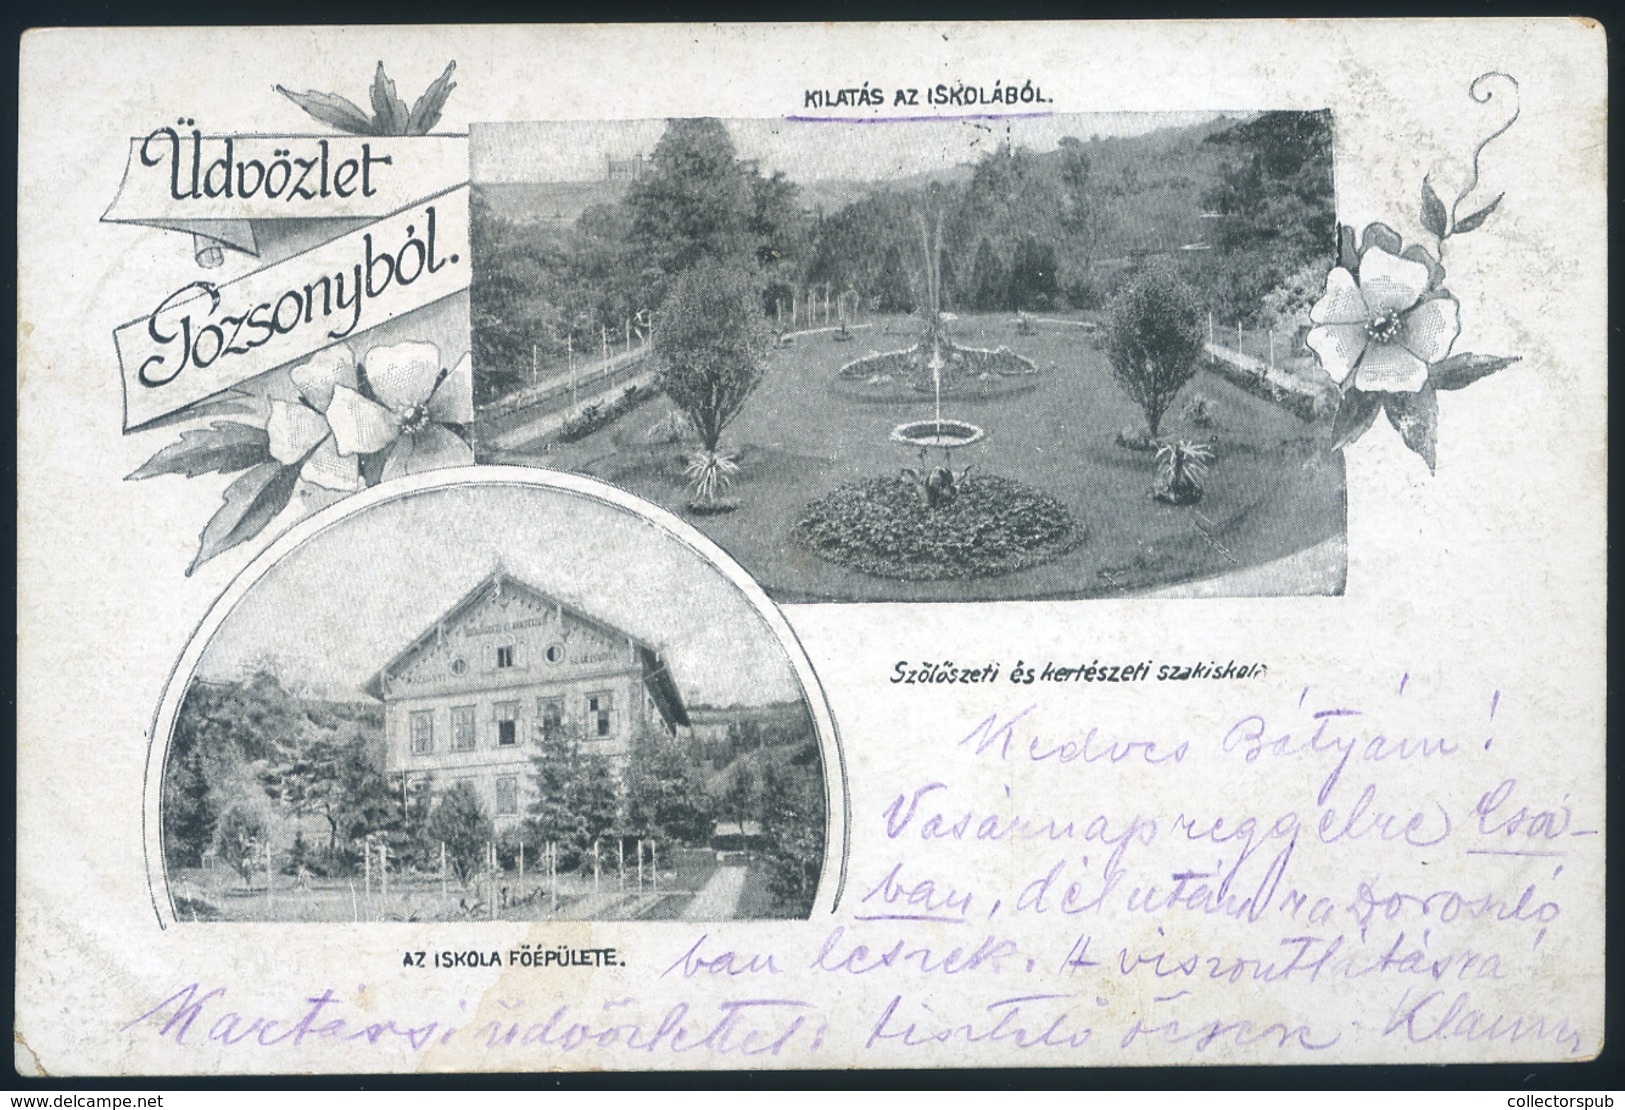 Üdvözlet
Pozsonyból.
KILATÁS AZ ISKOLÁBÓL.
Szőlőszeti és kertészeti szakiskola
AZ ISKOLA FŐÉPÜLETE.
Kedves Bátyám!
Vasárnap reggelre Csá-
ban, délutánra Doroszló
ban leszek. A viszontlátásra
Kartársi üdvözlettel: tisztelő öcsése
delcampe.net
collectorspub